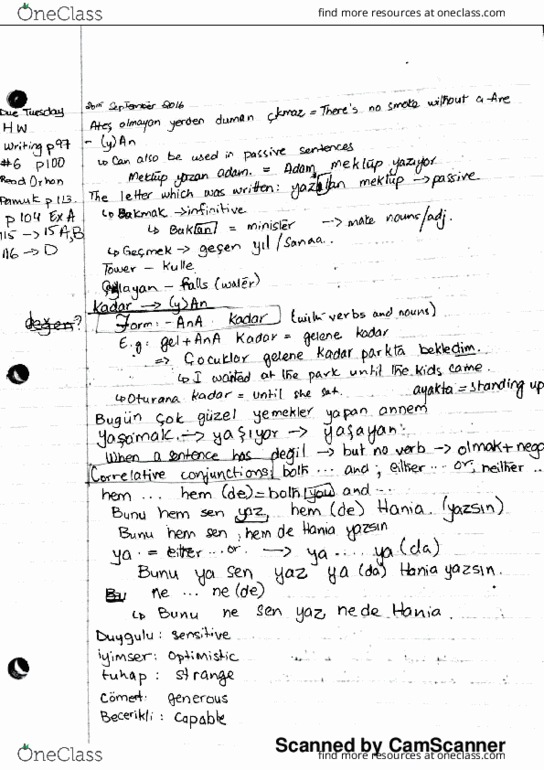 OneClass
find more resources at oneclass.com
20th September 2016
Due Tuesday
HW
Writing p97
#6 p100
Read Orhan
Pamuk p113
p104 Ex A
115 → 15 A,B
116 → D
Ateş olmayan yerden duman çıkmaz = There's no smoke without a fire
- (y)An
↳ Can also be used in passive sentences
Mektup yazan adam. = Adam mektup yazıyor
The letter which was written: yazılan mektup → passive
↳ Bakmak → infinitive
↳ Bakan = minister → make nouns/adj.
↳ Geçmek → geçen yıl / sınav.
Tower - kulle
- falls (water)
değen?
Kadar → (y)An
Form: -AnA kadar (with verbs and nouns)
E.g: gel + AnA kadar = gelene kadar
⇒ Çocuklar gelene kadar parkta bekledim.
↳ I waited at the park until the kids came.
↳ Oturana kadar = until she sat. ayakta = standing up
Bugün çok güzel yemekler yapan annem
Yaşamak → yaşıyor → yaşayan:
When a sentence has değil → but no verb → olmak + nego
Correlative conjunctions: both ... and ; either ... or, neither ..
hem ... hem (de) = both you and ...
Bunu hem sen yaz, hem (de) Hania. (yazsın)
Bunu hem sen, hem de Hania yazsın
ya = either ... or. → ya .... ya (da)
Bunu ya sen yaz ya (da) Hania yazsın.
Bu ne ... ne (de)
↳ Bunu ne sen yaz, ne de Hania.
Duygulu : sensitive
iyimser: optimistic
tuhap : strange
Cömet: generous
Becerikli : capable
Scanned by CamScanner
OneClass
find more resources at oneclass.com